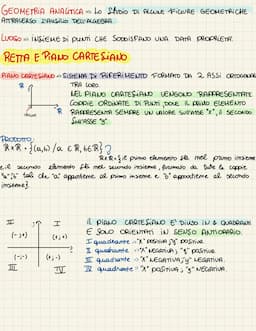 GEOMETRIA ANALITICA → LO STUDIO DI ALCUNE FIGURE GEOMETRICHE
ATTRAVERSO L'AUSILIO DELL'ALGEBRA.
LUOGO → INSIEME DI PUNTI CHE SODDISFANO UNA DATA PROPRIETÀ.
RETTA E PIANO CARTESIANO
PIANO CARTESIANO → SISTEMA DI RIFERIMENTO FORMATO DA 2 ASSI ORTOGONALI
TRA LORO.
NEL PIANO CARTESIANO VENGONO RAPPRESENTATE
COPPIE ORDINATE DI PUNTI, DOVE IL PRIMO ELEMENTO
RAPPRESENTA SEMPRE UN VALORE SULL'ASSE "X", IL SECONDO
SULL'ASSE "Y".
R
R
PRODOTTO
R×R = {(a,b) / a ∈ R, b ∈ R}
R×R = {il primo elemento sta nel primo insieme
e il secondo elemento sta nel secondo insieme, formato da tutte le coppie
"a" "b" tali che "a" appartiene al primo insieme e "b" appartiene al secondo
insieme}
IL PIANO CARTESIANO È DIVISO IN 4 QUADRANTI
E SONO ORIENTATI IN SENSO ANTIORARIO.
I quadrante → "X" POSITIVA, "Y" POSITIVA.
II quadrante → "X" NEGATIVA, "Y" POSITIVA.
III quadrante → "X" NEGATIVA, "Y" NEGATIVA.
IV quadrante → "X" POSITIVA, "Y" NEGATIVA.
II I
(-;+) (+;+)
(-;-) (+;-)
III IV